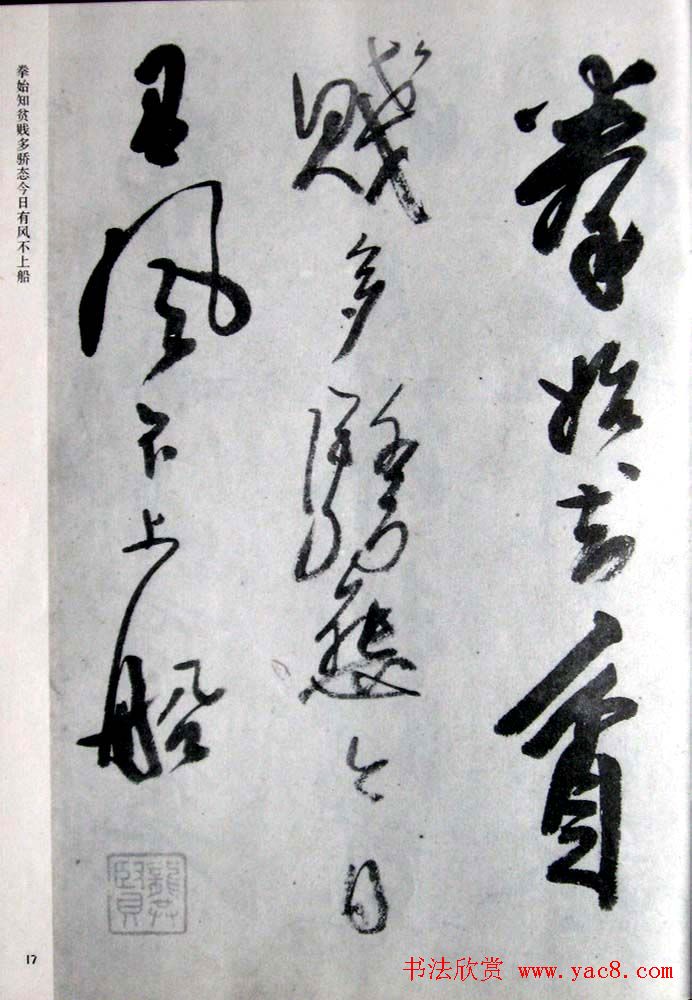 拳始知貧
賤多驕態今日
有風不上船
拳始知贫贱多骄态今日有风不上船
17
书法欣赏 www.yac8.com